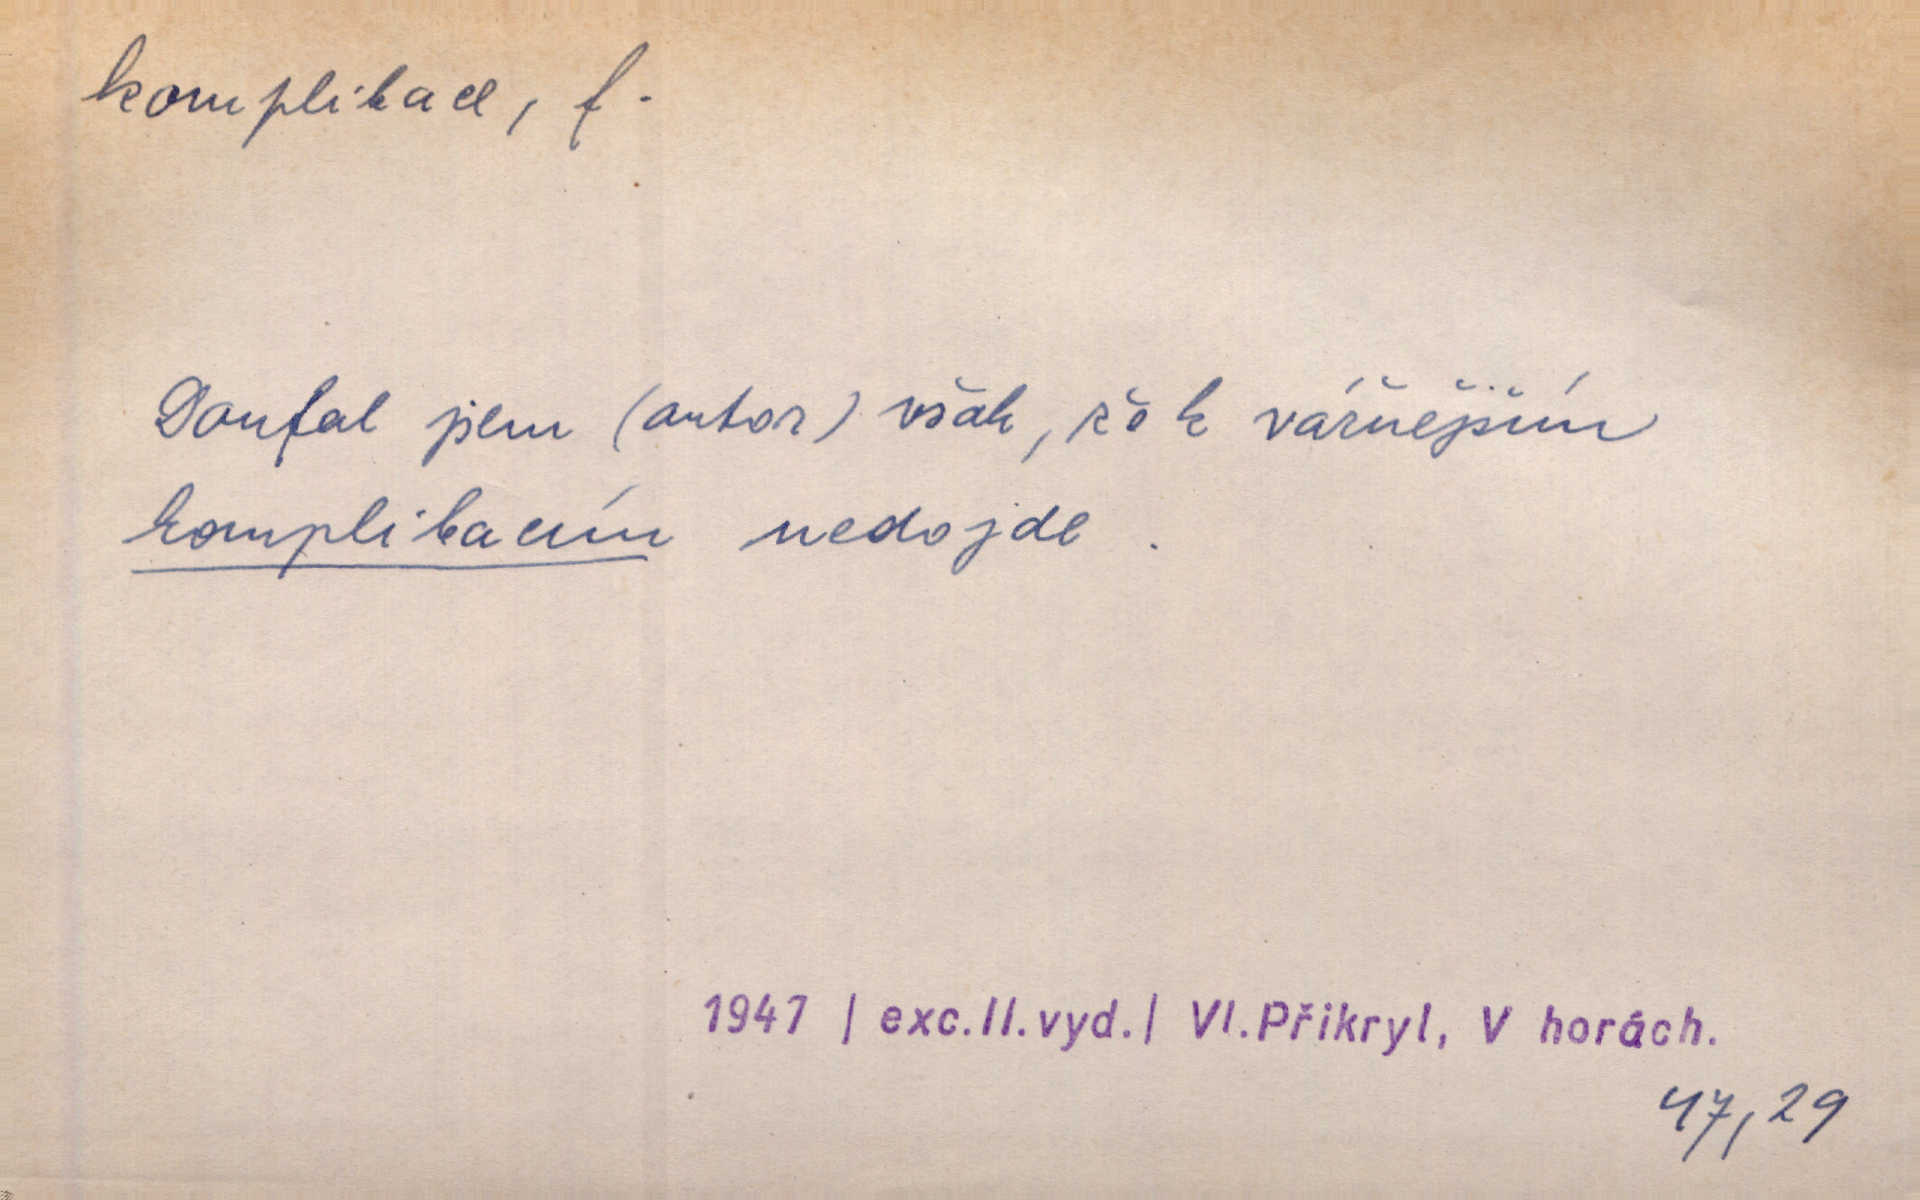 komplikace, f.
Doufal jsem (autor) však, že k vážnějším
komplikacím nedojde.
1947 / exc.II.vyd./ Vl.Přikryl, V horách.
47,29